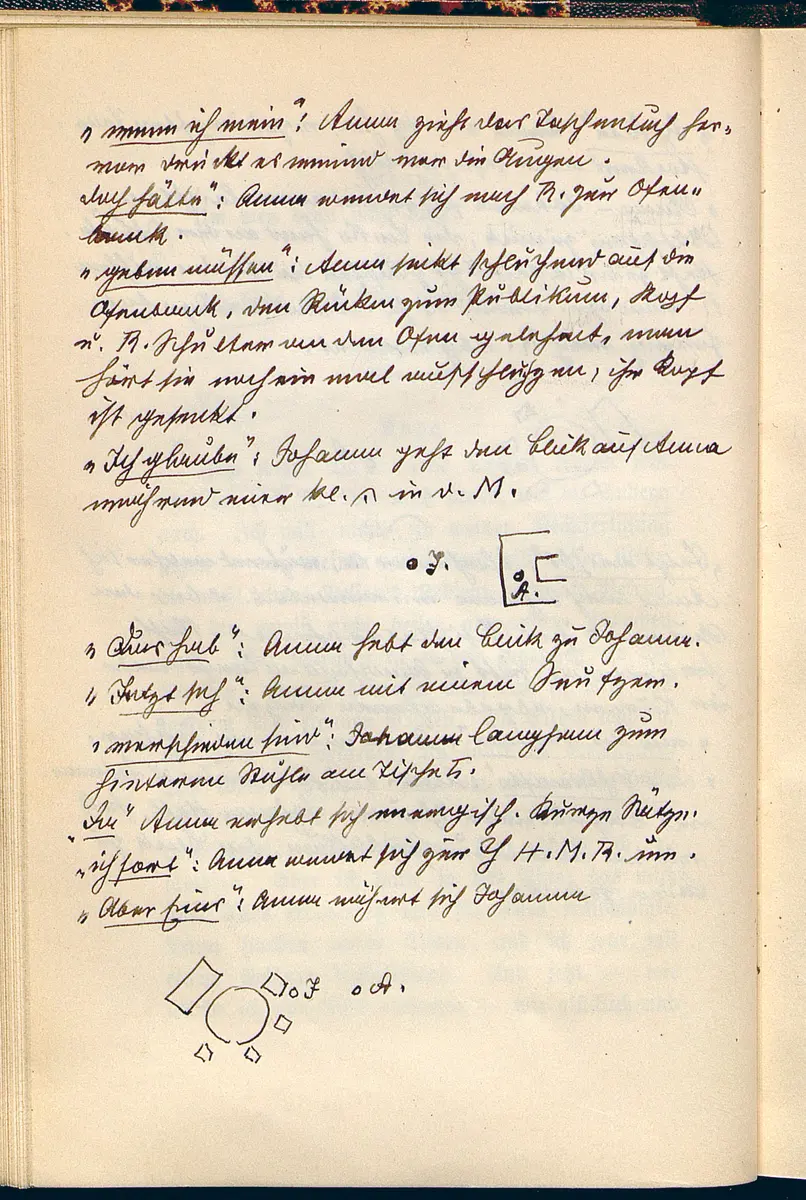 „wenn ich mein": Anna zieht das Taschentuch her-
vor drückt es weinend vor die Augen.
doch hätte": Anna wendet sich nach R. zur Ofen-
bank.
„geben müssen": Anna sinkt schluchzend auf die
Ofenbank, den Rücken zum Publikum, Kopf
u. R. Schulter an den Ofen gelehnt, man
hört sie noch ein mal aufschluchzen, ihr Kopf
ist gesenkt.
„Ich glaube": Johanna geht den Blick auf Anna
während einer kl. in d. M.
J.
A.
„Das hab": Anna hebt den Blick zu Johanna.
„Jetzt seh": Anna mit einem Seufzer.
„verschieden sind": Johanna langsam zum
hinteren Stuhle am Tische L.
„Ja" Anna erhebt sich energisch. Kurze Sätze.
„ich fort": Anna wendet sich zur H. M. R. um.
„Aber Eins": Anna nähert sich Johanna
J A.